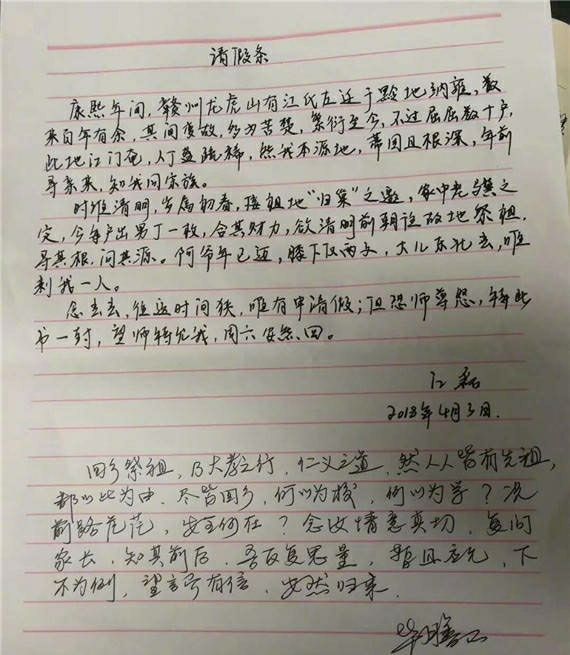 请假条
康熙年间，赣州龙虎山有江氏左迁于黔地纳雍，数
来百年有余，其间变故，多为苦楚，繁衍至今，不过屈屈数十户，
此地江门奄，人丁益疏稀，然我本源地，蒂固且根深，年前
寻亲来，知我同宗族。
时惟清明，岁属初春，接祖地“归巢”之邀，家中老
定，今每户出男丁一枚，合其财力，欲清明前朝诣故地祭祖，
寻其根，问其源。何爷年已迈，膝下仅两子，大儿东北去，唯
剩我一人。
念去去，往返时间狭，唯有申请假；但恐师尊怨，特
书一封，望师特允我，周六安然回。
江磊
2018年4月3日.
回乡祭祖，乃大孝之行，仁义之道，然人人皆有先祖，
都以此为由，尽皆回乡，何以为校，何以为学？况
前路茫茫，安可何在？念汝情意真切，复问
家长，知其前后，吾反复思量，暂且应允，下
不为例，望言而有信，安然归来.